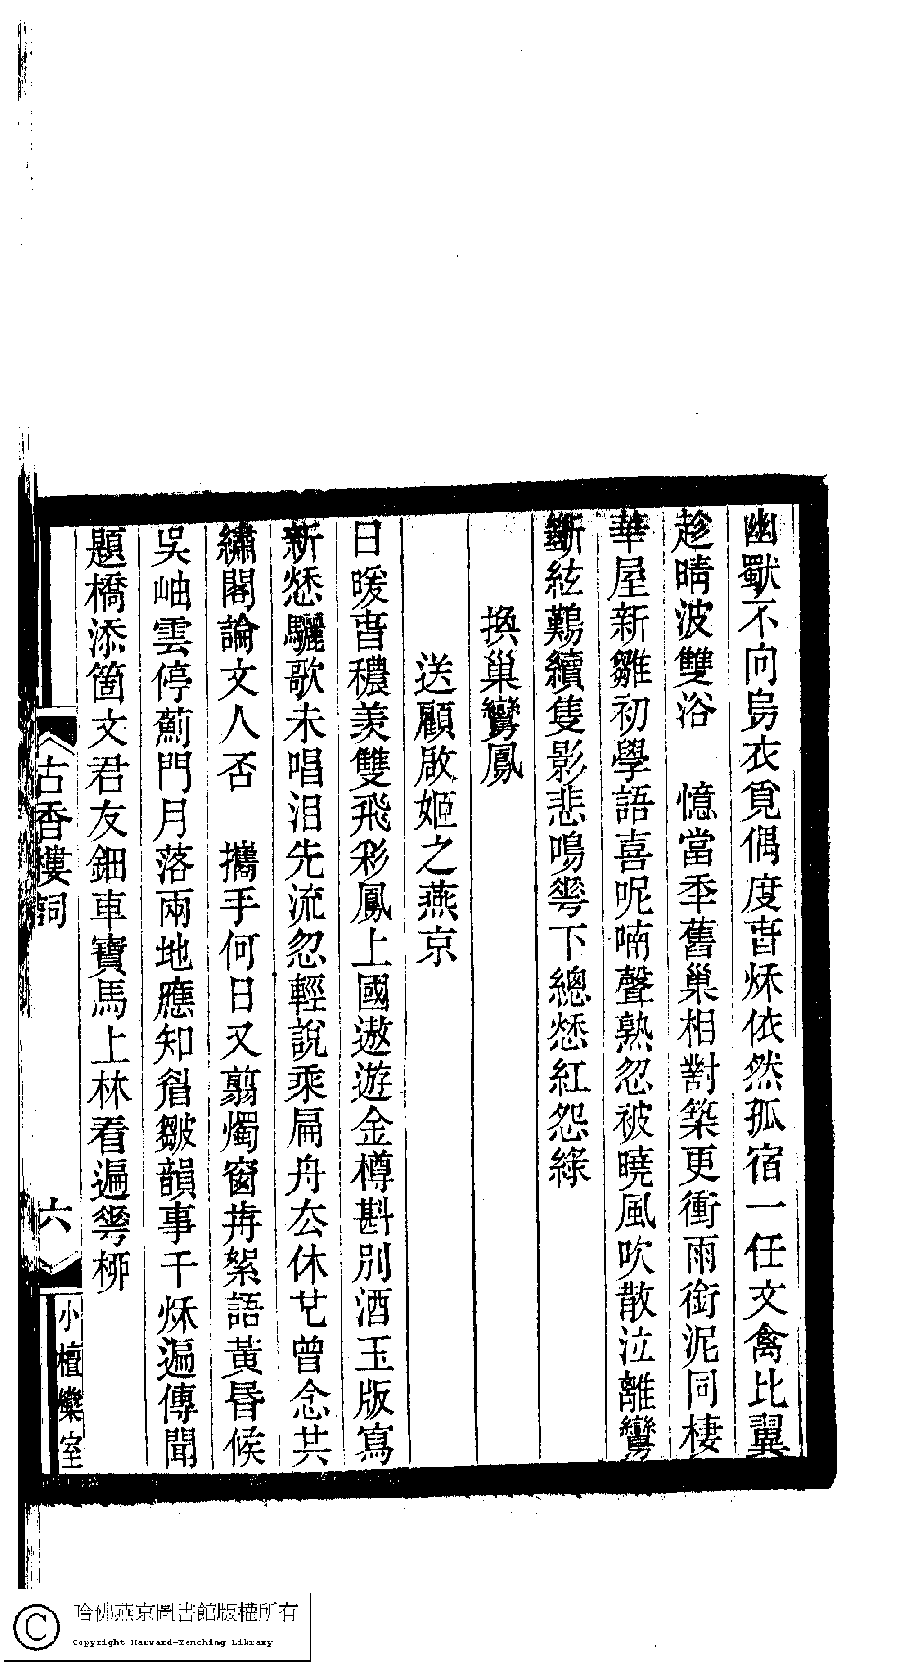 幽獸不向烏衣覓偶度旾秌依然孤宿一任文禽比翼
趁晴波雙浴　憶當秊舊巢相對築更衝雨銜泥同棲
華屋新雛初學語喜呢喃聲熟忽被曉風吹散泣離鸞
斷絃難續隻影悲鳴蕚下總愁紅怨綠
換巢鸞鳳
送顧啟姬之燕京
日暖旾穠羨雙飛彩鳳上國遨遊金樽斟別酒玉版寫
新愁驪歌未唱泪先流忽輕說乘扁舟厺休廿曾念共
繡閣論文人否　攜手何日又翦燭窗揹絮語黃昬候
吳岫雲停薊門月落兩地應知眉皺韻事千秌遍傳聞
題橋添箇文君友鈿車寶馬上林看遍蕚栁
古香樓詞
六
小檀欒室
哈佛燕京圖書館版權所有
Copyright Harvard-Yenching Library